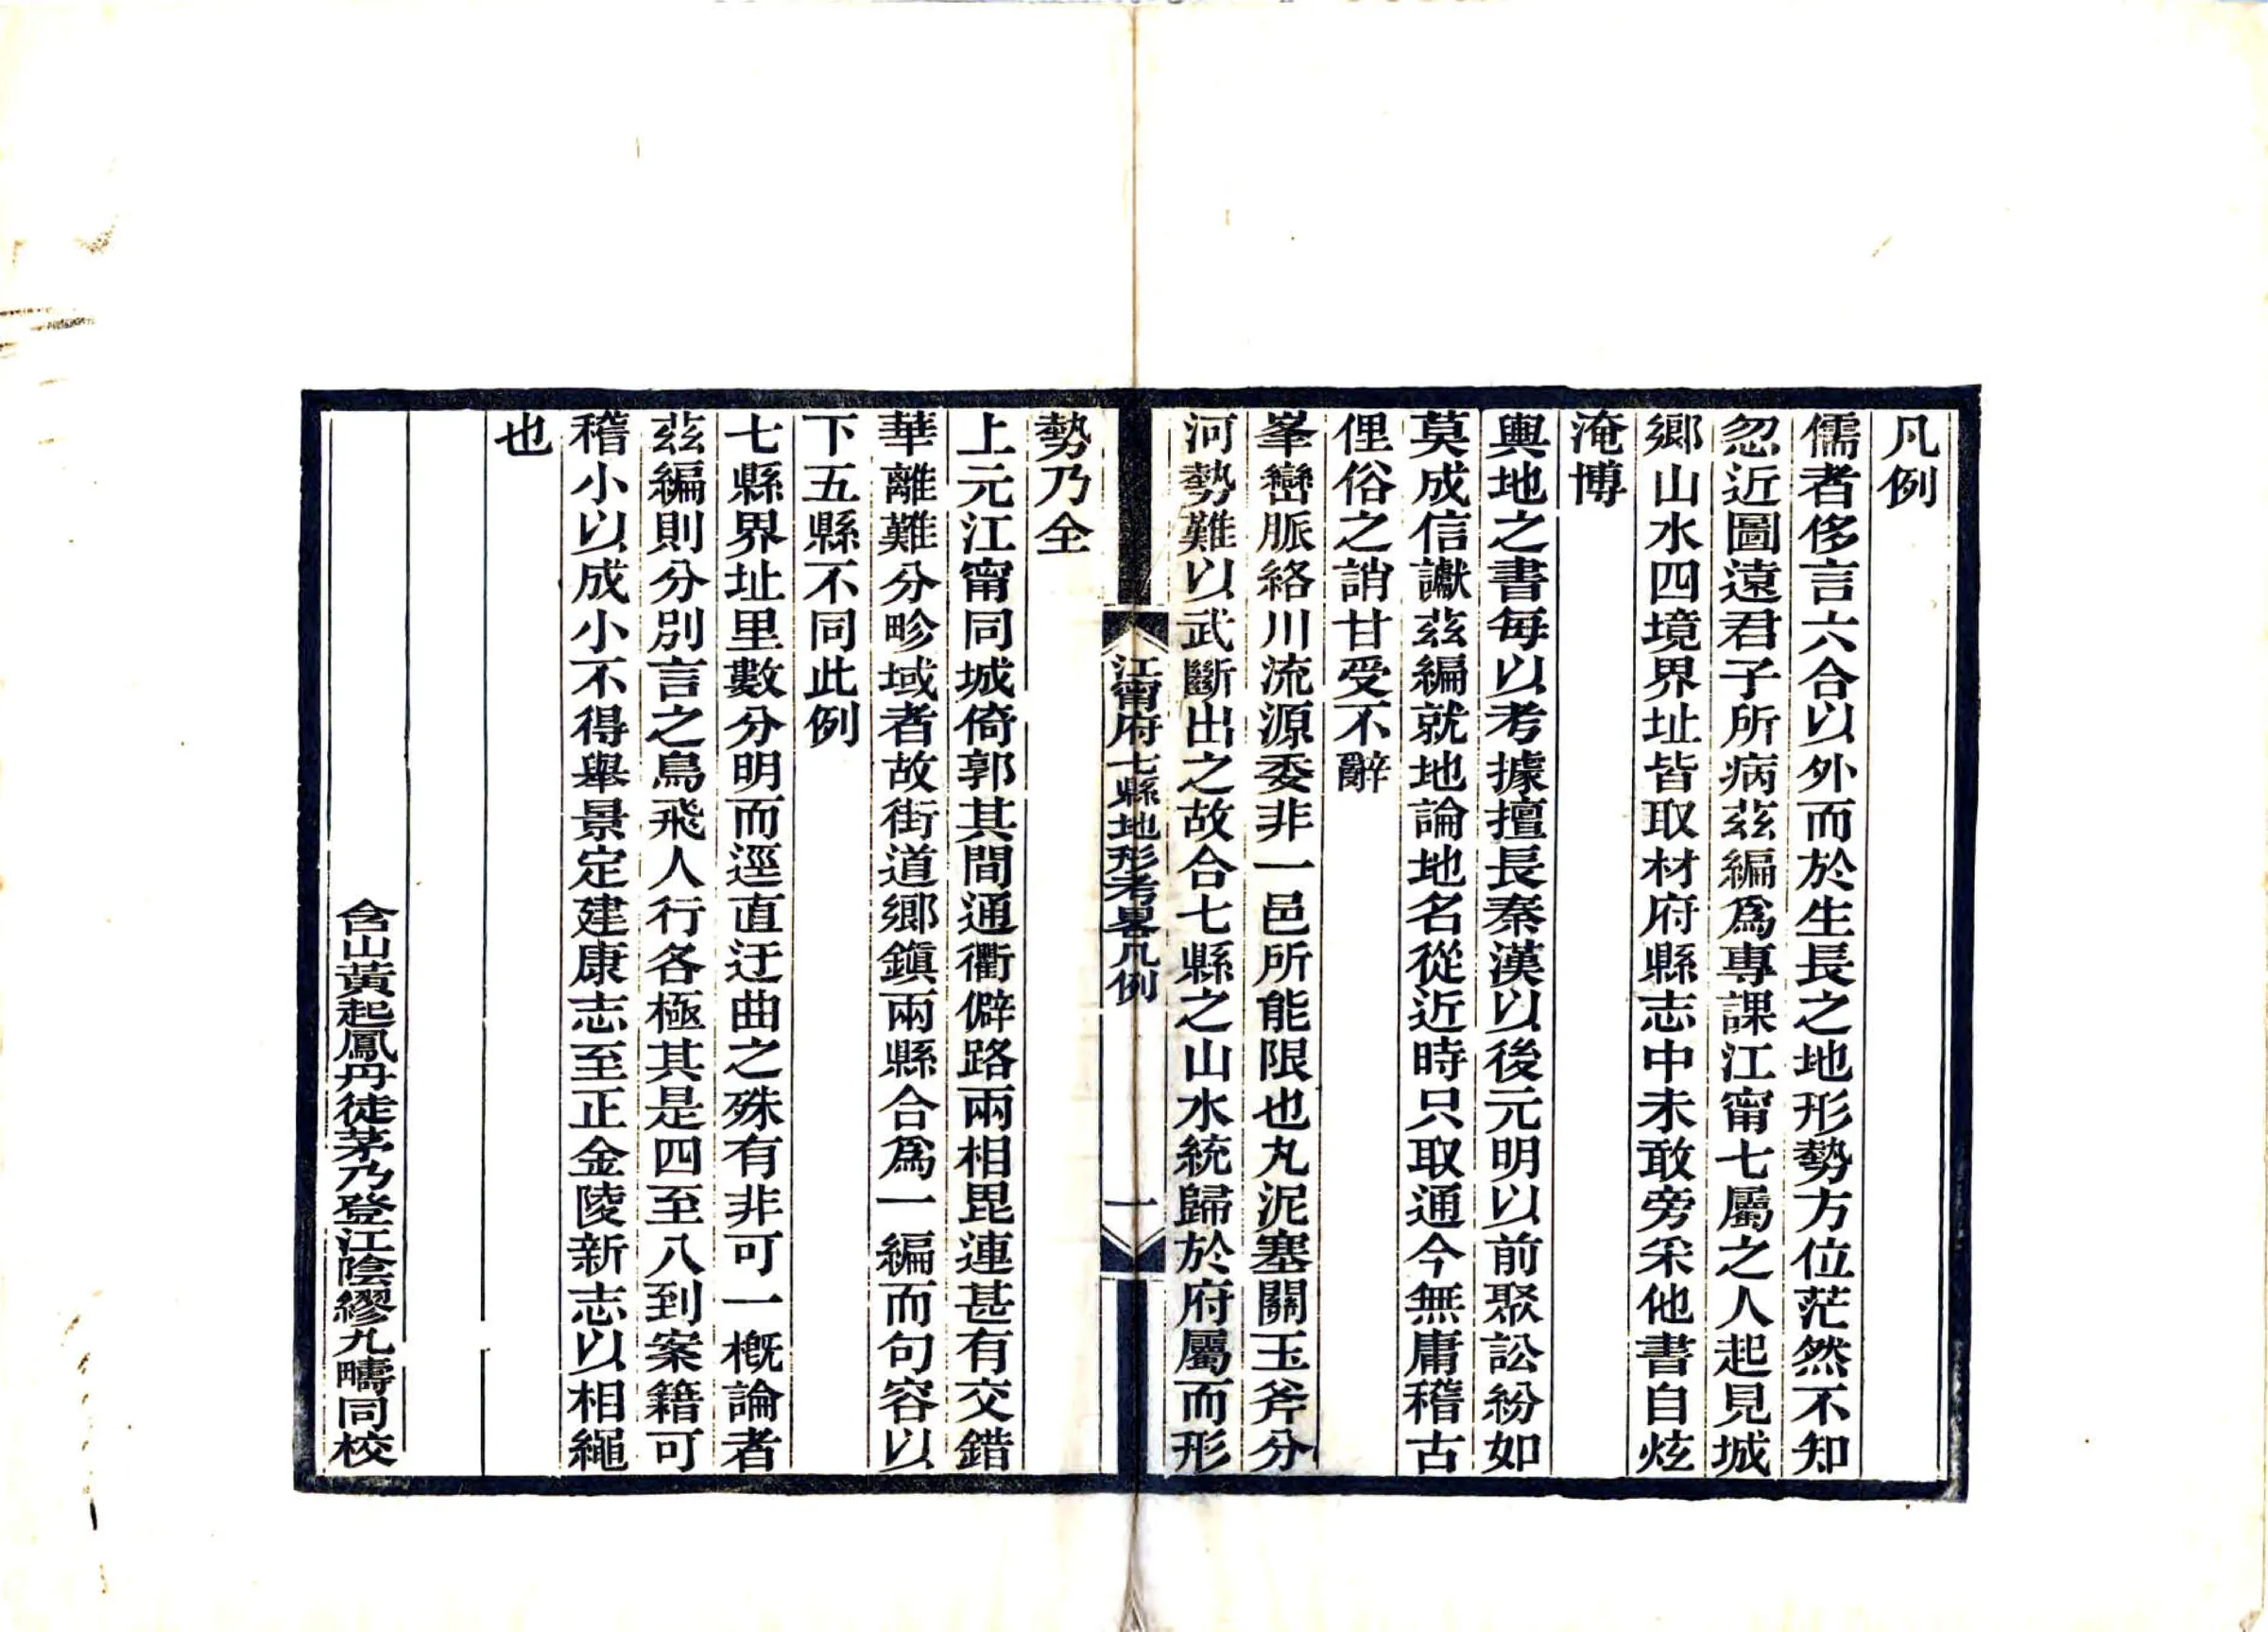 凡例
儒者侈言六合以外而於生長之地形勢方位茫然不知
忽近圖遠君子所病茲編爲專課江甯七屬之人起見城
鄉山水四境界址皆取材府縣志中未敢旁采他書自炫
淹博
輿地之書每以考據擅長秦漢以後元明以前聚訟紛如
莫成信讞茲編就地論地名從近時只取通今無庸稽古
俚俗之誚甘受不辭
峯巒脈絡川流源委非一邑所能限也丸泥塞關玉斧分
河勢難以武斷出之故合七縣之山水統歸於府屬而形
江甯府七縣地形考畧凡例
一
勢乃全
上元江甯同城倚郭其間通衢僻路兩相毘連甚有交錯
華離難分畛域者故街道鄉鎭兩縣合爲一編而句容以
下五縣不同此例
七縣界址里數分明而逕直迂曲之殊有非可一概論者
茲編則分別言之鳥飛人行各極其是四至八到案籍可
稽小以成小不得舉景定建康志至正金陵新志以相繩
也
含山黃起鳳丹徒茅乃登江陰繆九疇同校